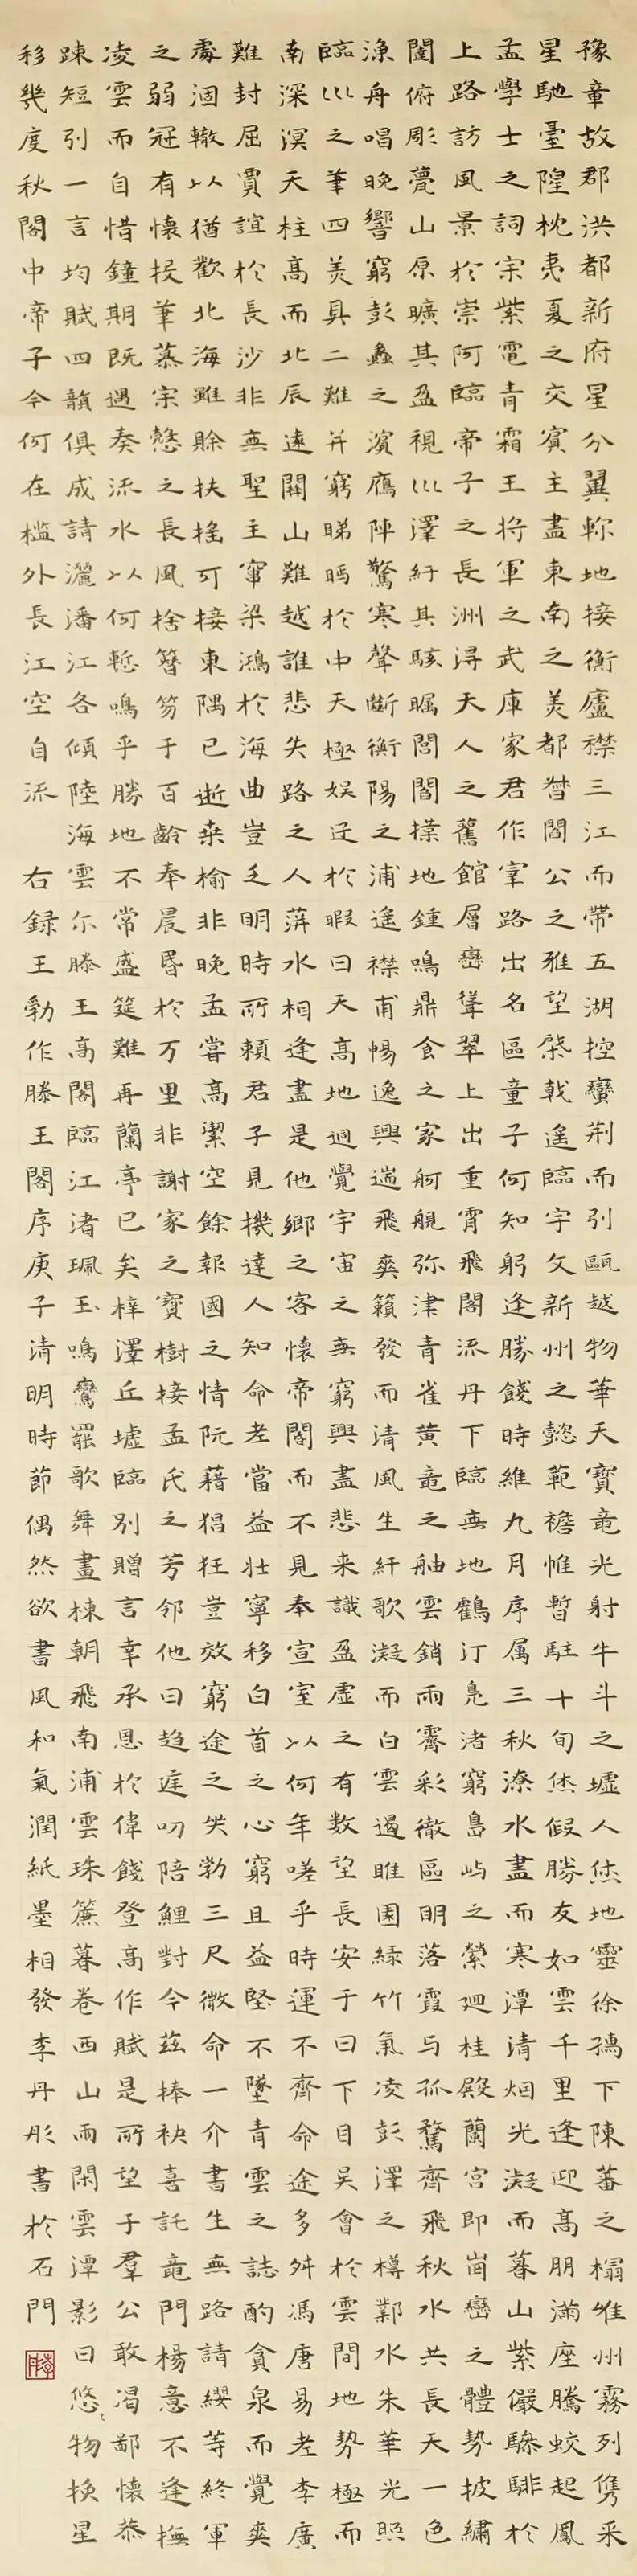 豫章故郡洪都新府星分翼軫地接衡廬襟三江而帶五湖控蠻荊而引甌越物華天寶竜光射牛斗之墟人杰地靈徐孺下陳蕃之榻雄州霧列儁采
星馳臺隍枕夷夏之交賓主盡東南之美都督閻公之雅望棨戟遙臨宇文新州之懿範襜帷暫駐十旬休假勝友如雲千里逢迎高朋滿座騰蛟起鳳
孟學士之詞宗紫電青霜王將軍之武庫家君作宰路出名區童子何知躬逢勝餞時維九月序属三秋潦水盡而寒潭清烟光凝而暮山紫儼驂騑於
上路訪風景於崇阿臨帝子之長洲得天人之舊館層巒聳翠上出重霄飛閣流丹下臨無地鶴汀鳧渚窮島嶼之縈廻桂殿蘭宮即崗巒之體勢披繡
闥俯彫甍山原曠其盈視川澤紆其駭矚閭閻撲地鍾鳴鼎食之家舸艦弥津青雀黃竜之舳雲銷雨霽彩徹區明落霞与孤鶩齊飛秋水共長天一色
漁舟唱晚響窮彭蠡之濱雁陣驚寒聲斷衡陽之浦遙襟甫暢逸興遄飛爽籟發而清風生纖歌凝而白雲遏睢園綠竹氣凌彭澤之樽鄴水朱華光照
臨川之筆四美具二難并窮睇眄於中天極娛遊於暇日天高地迥覺宇宙之無窮興盡悲来識盈虛之有數望長安于日下目吳會於雲間地勢極而
南深溟天柱高而北辰遠關山難越誰悲失路之人萍水相逢盡是他鄉之客懷帝閽而不見奉宣室以何年嗟乎時運不齊命途多舛馮唐易老李廣
難封屈賈誼於長沙非無聖主竄梁鴻於海曲豈乏明時所賴君子見機達人知命老當益壯寧移白首之心窮且益堅不墜青雲之誌酌貪泉而覺爽
處涸轍以猶歡北海雖賒扶搖可接東隅已逝桑榆非晚孟嘗高潔空餘報國之情阮藉猖狂豈效窮途之哭勃三尺微命一介書生無路請纓等終軍
之弱冠有懷投筆慕宗愨之長風捨簪笏于百齡奉晨昏於万里非謝家之寶樹接孟氏之芳邻他日趋庭叨陪鯉對今茲捧袂喜託竜門楊意不逢撫
凌雲而自惜鐘期既遇奏流水以何慙鳴乎勝地不常盛筵難再蘭亭已矣梓澤丘墟臨別贈言幸承恩於偉餞登高作賦是所望于羣公敢竭鄙懷恭
踈短引一言均賦四韻俱成請灑潘江各傾陸海雲尔滕王高閣臨江渚珮玉鳴鸞罷歌舞畫棟朝飛南浦雲珠簾暮卷西山雨閑雲潭影日悠〻物換星
移幾度秋閣中帝子今何在檻外長江空自流 右録王勃作滕王閣序庚子清明時節偶然欲書風和氣潤紙墨相發李丹彤書於石門